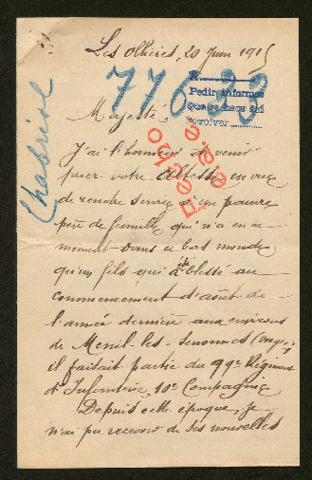 Les Ollières, 20 Juin 1915
77623
A
Pedir informes
Que se haga sei
Devolver
Majesté
Chabriol
Fecho
J'ai l'honneur de venir
prier votre Altesse en vue
de rendre service à un pauvre
père de famille qui n'a en ce
moment dans ce bas monde
qu'un fils qui a été blessé au
commencement d'août de
l'année dernière aux environs
de Menil-les-Senonnes (Vosges)
il faisait partie du 99e Régiment
d'Infanterie 10e Compagnie
Depuis cette époque, je
n'ai pu recevoir de ses nouvelles